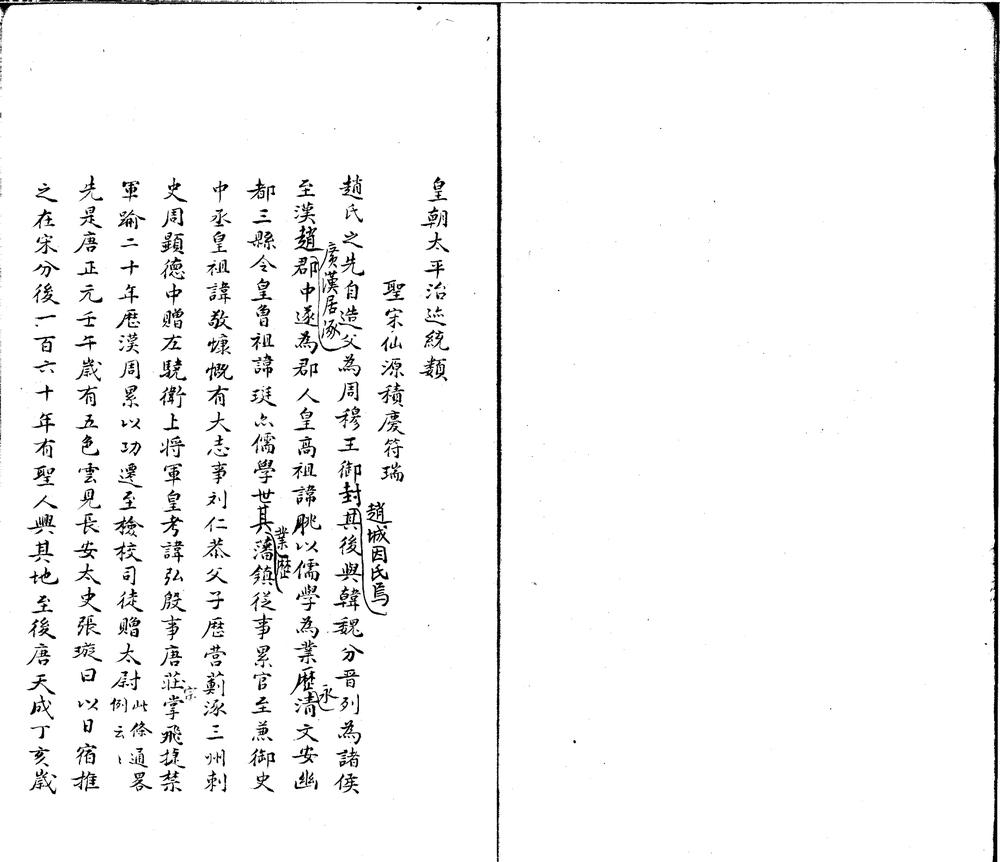 皇朝太平治迹統類
聖宋仙源積慶符瑞
趙城因氏焉
趙氏之先自造父為周穆王御封其後與韓魏分晉列為諸侯
廣漢居涿
永
至漢趙郡中遂為郡人皇高祖諱眺以儒學為業歷清文安幽
業歷
都三縣令皇曾祖諱珽亦儒學世其藩鎮從事累官至兼御史
中丞皇祖諱敬慷慨有大志事刘仁恭父子歷营薊涿三州刺
宗
史周顕德中贈左驍衛上將軍皇考諱弘殷事唐莊掌飛捷禁
軍踰二十年歷漢周累以功遷至檢校司徒贈太尉此條通畧例云〻
先是唐正元壬午歲有五色雲見長安太史張璇曰以日宿推
之在宋分後一百六十年有聖人興其地至後唐天成丁亥歲